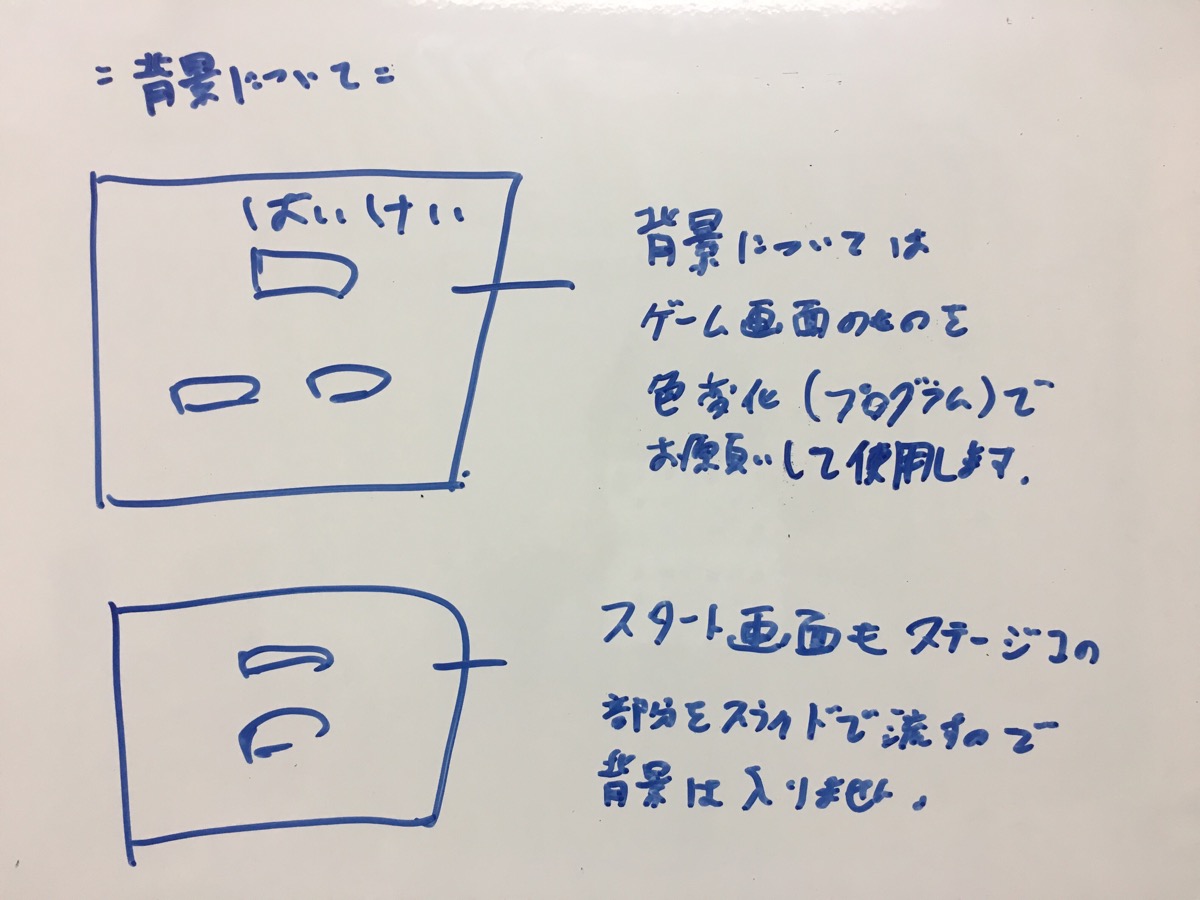 =背景について=
はいけい
背景については
ゲーム画面のものを
色変化(プログラム)で
お願いして使用します.
スタート画面もステージ1の
部分をスライドで流すので
背景は入りません.